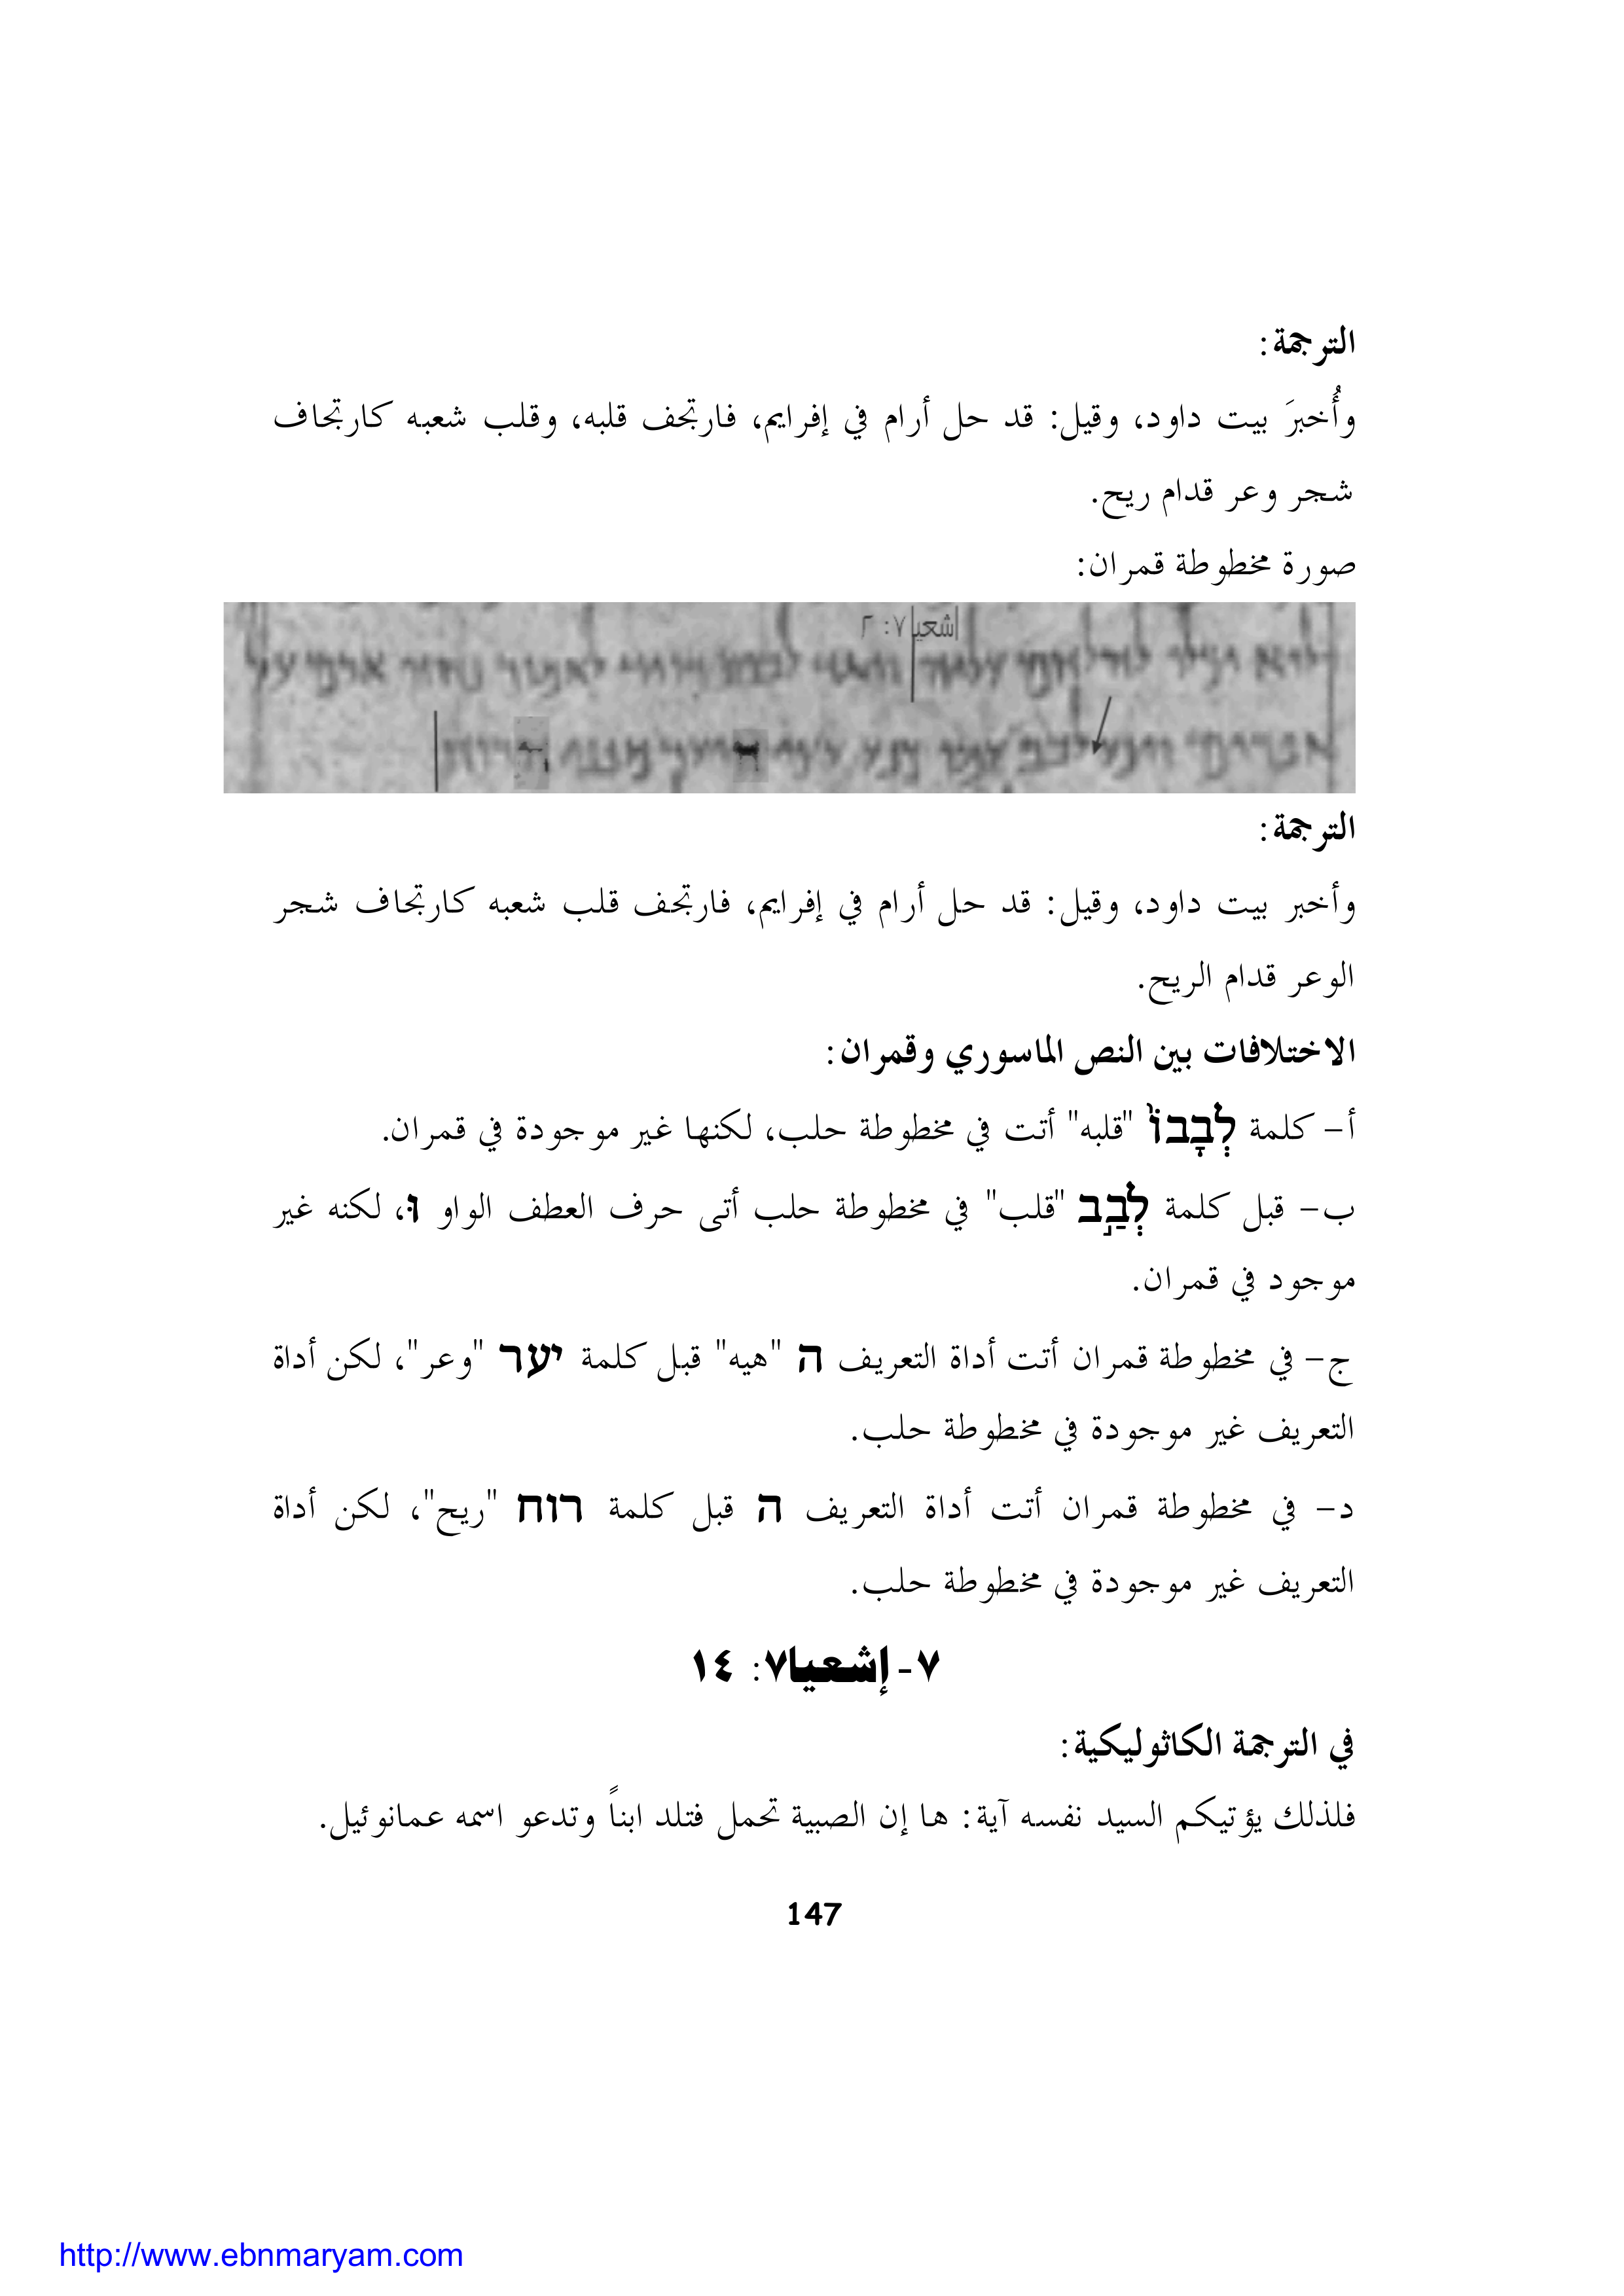 الترجمة:
وأُخبرَ بيت داود، وقيل: قد حل أرام في إفرايم، فارتجف قلبه، وقلب شعبه كارتجاف
شجر وعر قدام ريح.
صورة مخطوطة قمران:
إشعيا ٧: ٢
الترجمة:
وأخبر بيت داود، وقيل: قد حل أرام في إفرايم، فارتجف قلب شعبه كارتجاف شجر
الوعر قدام الريح.
الاختلافات بين النص الماسوري وقمران:
أ- كلمة לְבָבוֹ "قلبه" أتت في مخطوطة حلب، لكنها غير موجودة في قمران.
ب- قبل كلمة לְבַב "قلب" في مخطوطة حلب أتى حرف العطف الواو וּ، لكنه غير
موجود في قمران.
ج- في مخطوطة قمران أتت أداة التعريف ה "هيه" قبل كلمة יער "وعر"، لكن أداة
التعريف غير موجودة في مخطوطة حلب.
د- في مخطوطة قمران أتت أداة التعريف ה قبل كلمة רוח "ريح"، لكن أداة
التعريف غير موجودة في مخطوطة حلب.
٧- إشعيا٧: ١٤
في الترجمة الكاثوليكية:
فلذلك يؤتيكم السيد نفسه آية: ها إن الصبية تحمل فتلد ابناً وتدعو اسمه عمانوئيل.
147
http://www.ebnmaryam.com